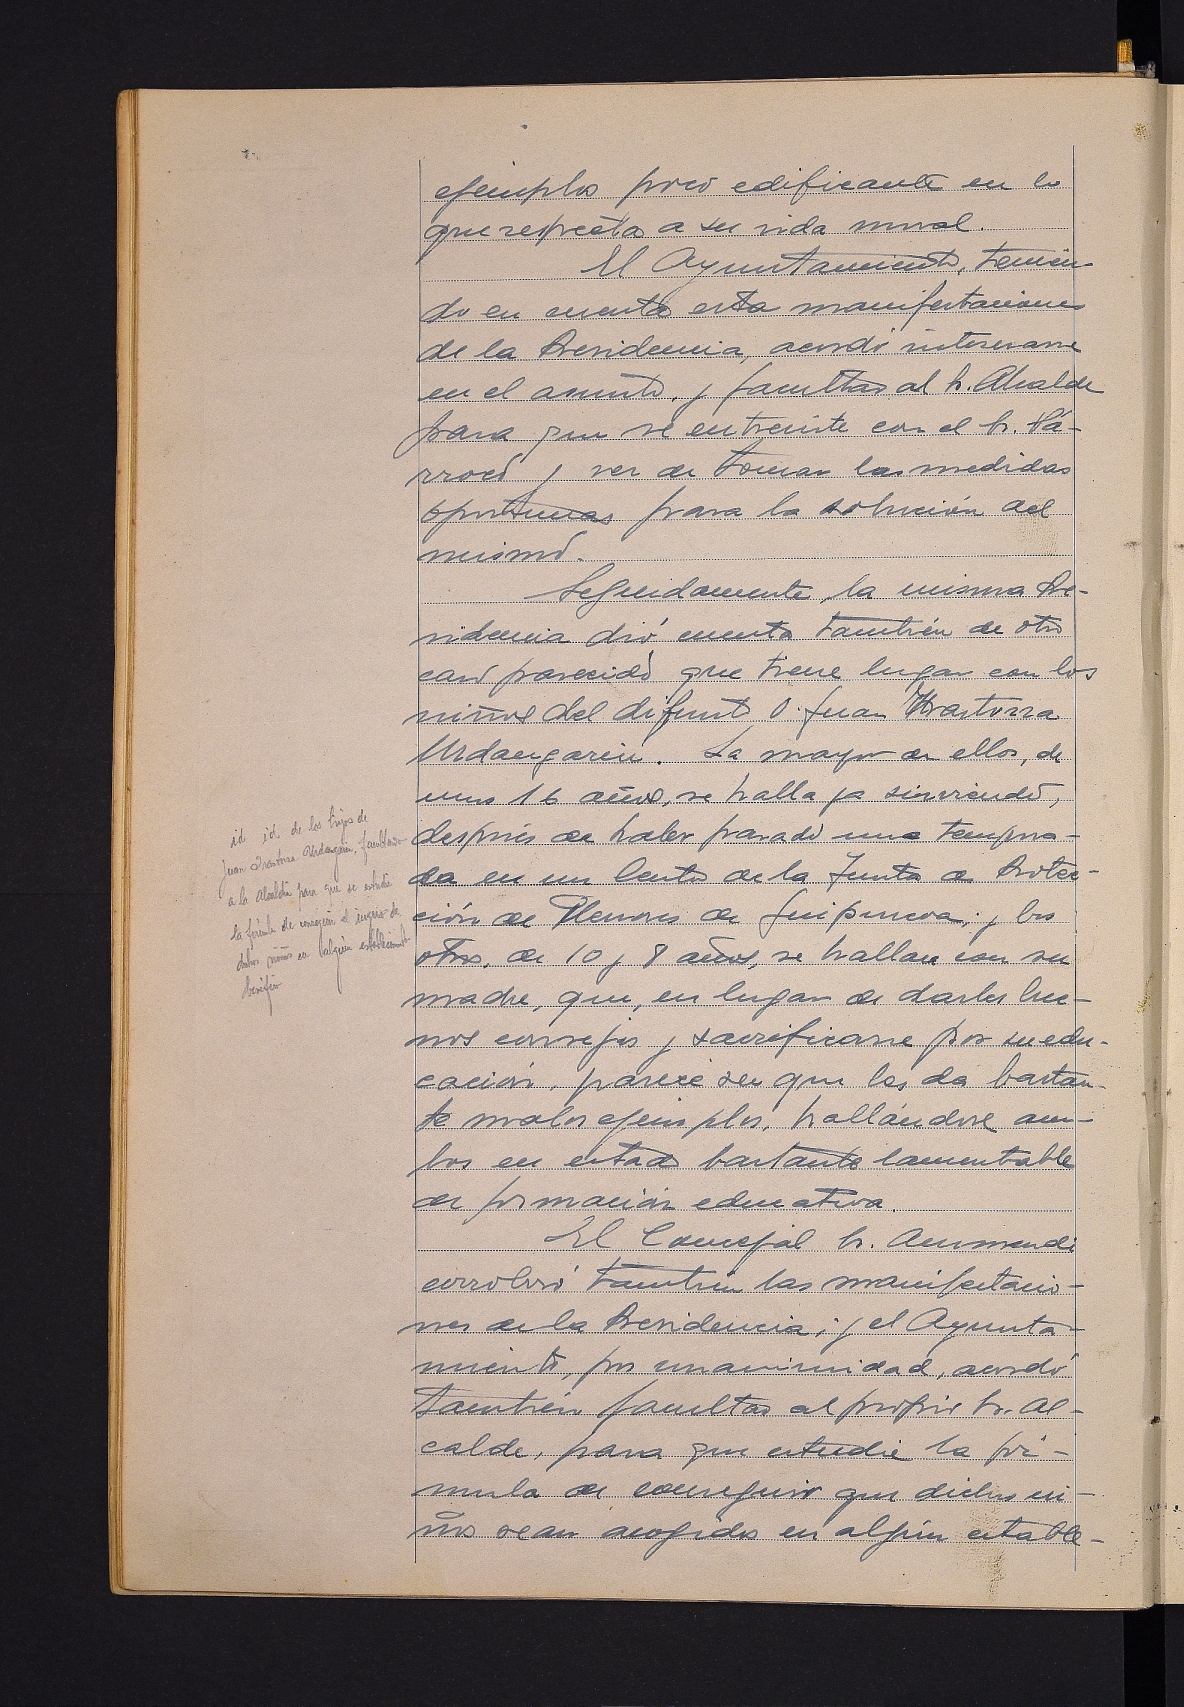 ejemplos poco edificante en lo
que respecta a su vida moral.
El Ayuntamiento, tenien
do en cuenta esta manifestaciones
de la Presidencia, acordó interesarse
en el asunto, y facultar al Sr. Alcalde
para que se entreviste con el Sr. Pá-
rroco y ver de tomar las medidas
oportunas para la solución del
mismo.
Seguidamente, la misma Pre-
sidencia dió cuenta también de otro
caso parecido que tiene lugar con los
niños del difunto D. Juan Irastorza
Urdangarin. La mayor de ellos, de
unos 16 años, se halla ya sirviendo,
después de haber pasado una tempora-
da en un Centro de la Junta de Protec-
ción de Menores de Guipuzcoa; y los
otros, de 10 y 8 años, se hallan con su
madre, que, en lugar de darles bue-
nos consejos y sacrificarse por su edu-
cación, parece ser que les da bastan-
te malos ejemplos, hallándose am-
bos en estado bastante lamentable
de formación educativa.
El Concejal Sr. Aurmendi
corroboró también las manifestacio-
nes de la Presidencia; y el Ayunta-
miento, por unanimidad, acordó
también facultar al propio Sr. Al-
calde, para que estudie la fór-
mula de conseguir que dichos ni-
ños sean acogidos en algún estable-
id id. de los hijos de
Juan Irastorza Urdangarin, facultando
a la Alcaldía para que se estudie
la fórmula de conseguir el ingreso de
dichos niños en algún establecimiento
benéfico